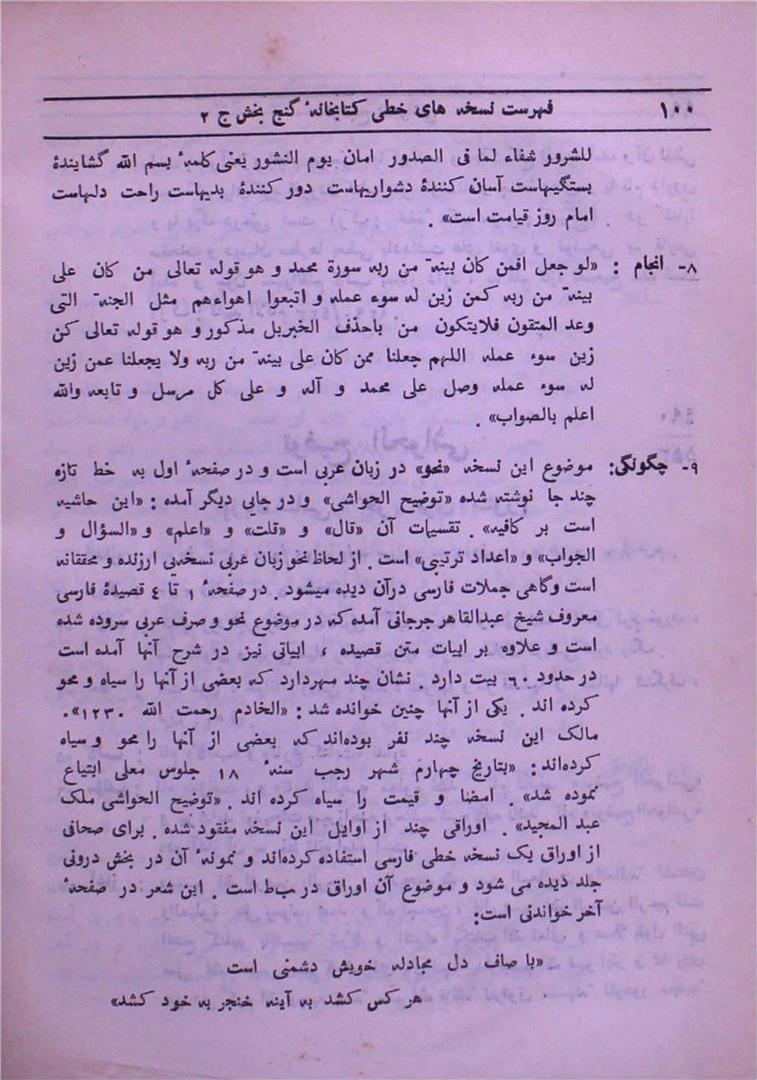 ١٠٠ فهرست نسخه های خطی کتابخانهٔ گنج بخش ج ٢
للشرور شفاء لما فی الصدور امان یوم النشور یعنی کلمهٔ بسم الله گشایندهٔ
بستگیهاست آسان کنندهٔ دشواریهاست دور کنندهٔ بدیهاست راحت دلهاست
امام روز قیامت است» .
٨- انجام : «لو جعل افمن کان بینة من ربه سورة محمد و هو قوله تعالی من کان علی
بینة من ربه کمن زین له سوء عمله و اتبعوا اهواءهم مثل الجنة التی
وعد المتقون فلایتکون من باحذف الخبربل مذکور و هو قوله تعالی کن
زین سوء عمله اللهم جعلنا ممن کان علی بینة من ربه ولا یجعلنا عمن زین
له سوء عمله وصل علی محمد و آله و علی کل مرسل و تابعه والله
اعلم بالصواب» .
٩- چگونگی: موضوع این نسخه «نحو» در زبان عربی است و در صفحهٔ اول به خط تازه
چند جا نوشته شده «توضیح الحواشی» و در جایی دیگر آمده : «این حاشیه
است بر کافیه» . تقسیات آن «قال» و «قلت» و «اعلم» و «السؤال و
الجواب» و «اعداد ترتیبی» است . از لحاظ نحو زبان عربی نسخه‌ئی ارزنده و محققانه
است وگاهی جملات فارسی درآن دیده میشود . در صفحهٔ ١ تا ٤ قصیدهٔ فارسی
معروف شیخ عبدالقاهر جرجانی آمده که در موضوع نحو و صرف عربی سروده شده
است و علاوه بر ابیات متن قصیده ، ابیاتی نیز در شرح آنها آمده است
در حدود ٦٠ بیت دارد . نشان چند مهردارد که بعضی از آنها را سیاه و محو
کرده اند . یکی از آنها چنین خوانده شد : «الخادم رحمت الله ١٢٣٠».
مالک این نسخه چند نفر بوده‌اند که بعضی از آنها را محو و سیاه
کرده‌اند : «بتاریخ چهارم شهر رجب سنهٔ ١٨ جلوس معلی ابتیاع
نموده شد» . امضا و قیمت را سیاه کرده اند . «توضیح الحواشی ملک
عبد المجید» . اوراقی چند از اوایل این نسخه مفقود شده . برای صحافی
از اوراق یک نسخه خطی فارسی استفاده کرده‌اند و نمونهٔ آن در بخش درونی
جلد دیده می شود و موضوع آن اوراق در ب‍ط است . این شعر در صفحهٔ
آخر خواندنی است:
«با صاف دل مجادله خویش دشمنی است
هر کس کشد به آینه خنجر به خود کشد»